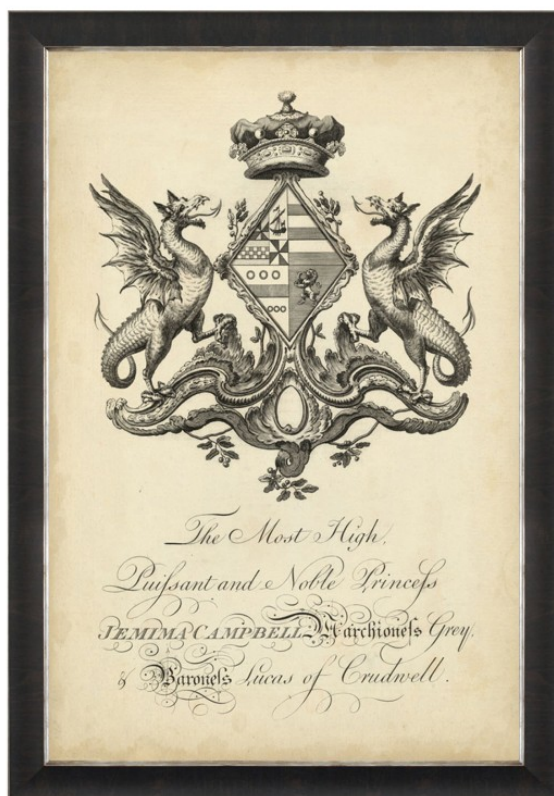 The Most High,
Puiſsant and Noble Princeſs
JEMIMA CAMPBELL Marchioneſs Grey,
& Baroneſs Lucas of Crudwell.